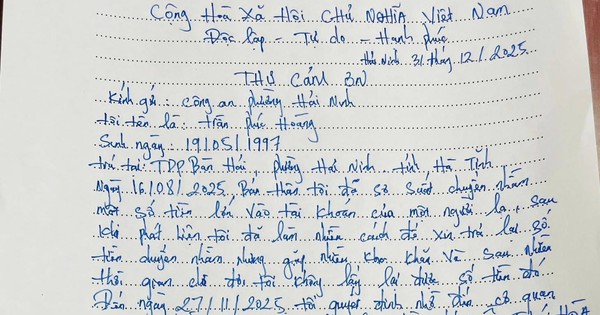 Cộng Hoà Xã Hội Chủ Nghĩa Việt Nam
Độc lập - Tự do - Hạnh phúc
Hải Ninh 31 tháng 12/2025
THƯ CẢM ƠN
Kính gửi: Công an phường Hải Ninh
tôi tên là: Trần Phúc Hoàng
Sinh ngày: 19/05/1997
trú tại: TDP Bắc Hải, phường Hải Ninh tỉnh Hà Tĩnh
Ngày 16/08/2025, Bản thân tôi đã sơ suất chuyển nhầm
một số tiền lớn vào tài khoản của một người lạ, sau
khi phát hiện tôi đã làm nhiều cách để xin trả lại số
tiền chuyển nhầm nhưng gặp nhiều khó khăn và sau nhiều
thời gian chờ đợi tôi không lấy lại được số tiền đó
Đến ngày 27/11/2025 tôi quyết định nhờ đến cơ quan